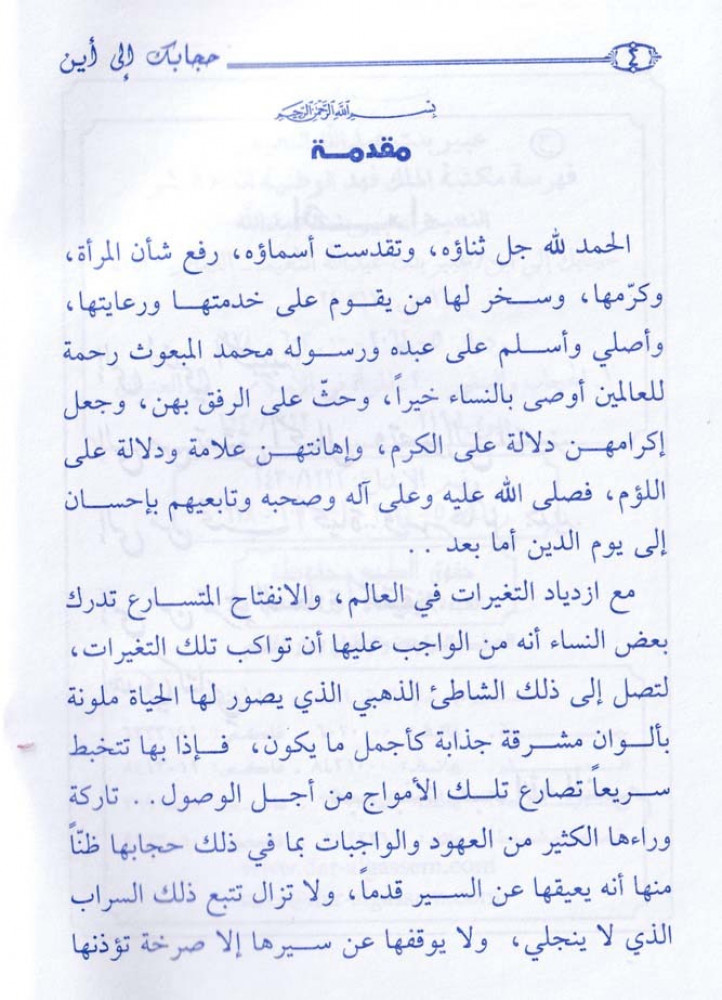 ٤
حجابك إلى أين
بسم الله الرحمن الرحيم
مقدمة
الحمد لله جل ثناؤه، وتقدست أسماؤه، رفع شأن المرأة،
وكرّمها، وسخر لها من يقوم على خدمتها ورعايتها،
وأصلي وأسلم على عبده ورسوله محمد المبعوث رحمة
للعالمين أوصى بالنساء خيراً، وحثّ على الرفق بهن، وجعل
إكرامهن دلالة على الكرم، وإهانتهن علامة ودلالة على
اللؤم، فصلى الله عليه وعلى آله وصحبه وتابعيهم بإحسان
إلى يوم الدين أما بعد ..
مع ازدياد التغيرات في العالم، والانفتاح المتسارع تدرك
بعض النساء أنه من الواجب عليها أن تواكب تلك التغيرات،
لتصل إلى ذلك الشاطئ الذهبي الذي يصور لها الحياة ملونة
بألوان مشرقة جذابة كأجمل ما يكون، فإذا بها تتخبط
سريعاً تصارع تلك الأمواج من أجل الوصول.. تاركة
وراءها الكثير من العهود والواجبات بما في ذلك حجابها ظنّاً
منها أنه يعيقها عن السير قدماً، ولا تزال تتبع ذلك السراب
الذي لا ينجلي، ولا يوقفها عن سيرها إلا صرخة تؤذنها